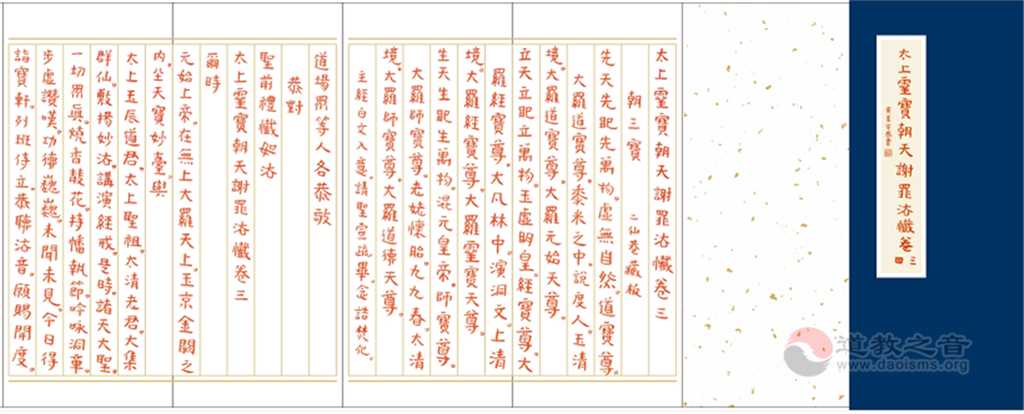 太上靈寶朝天謝罪法懺卷三 四
太上靈寶朝天謝罪法懺卷三
朝三寶 二仙巷藏板
先天先地先萬物。虛無自然。道寶尊。
大羅道寶尊。黍米之中。說度人。玉清
境。大羅道寶尊。大羅元始天尊。
立天立地立萬物。玉虛明皇。經寶尊。大
羅經寶尊。大凡林中。演洞文。上清
境。大羅經寶尊。大羅靈寶天尊。
生天生地生萬物。混元皇帝。師寶尊。
大羅師寶尊。老姥懷胎。九九春。太清
境。大羅師寶尊。大羅道德天尊。
主經白文入意。請聖宣疏畢。念誥焚化。
道場眾等人各恭敬
恭對
聖前禮懺如法
太上靈寶朝天謝罪法懺卷三
爾時
元始上帝。在無上大羅天上。玉京金闕之
内。坐天寶妙臺。與
太上玉辰道君。太上聖祖。太清老君。大集
群仙。敷揚妙法。講演經戒。是時諸天大聖。
一切眾真。燒香散花。持幡執節。吟咏洞章
步虛讚嘆。功德巍巍。未聞未見。今日得
詣寶軒。列班侍立。恭聽法音。願賜開度。
道教之音
www.daoisms.org